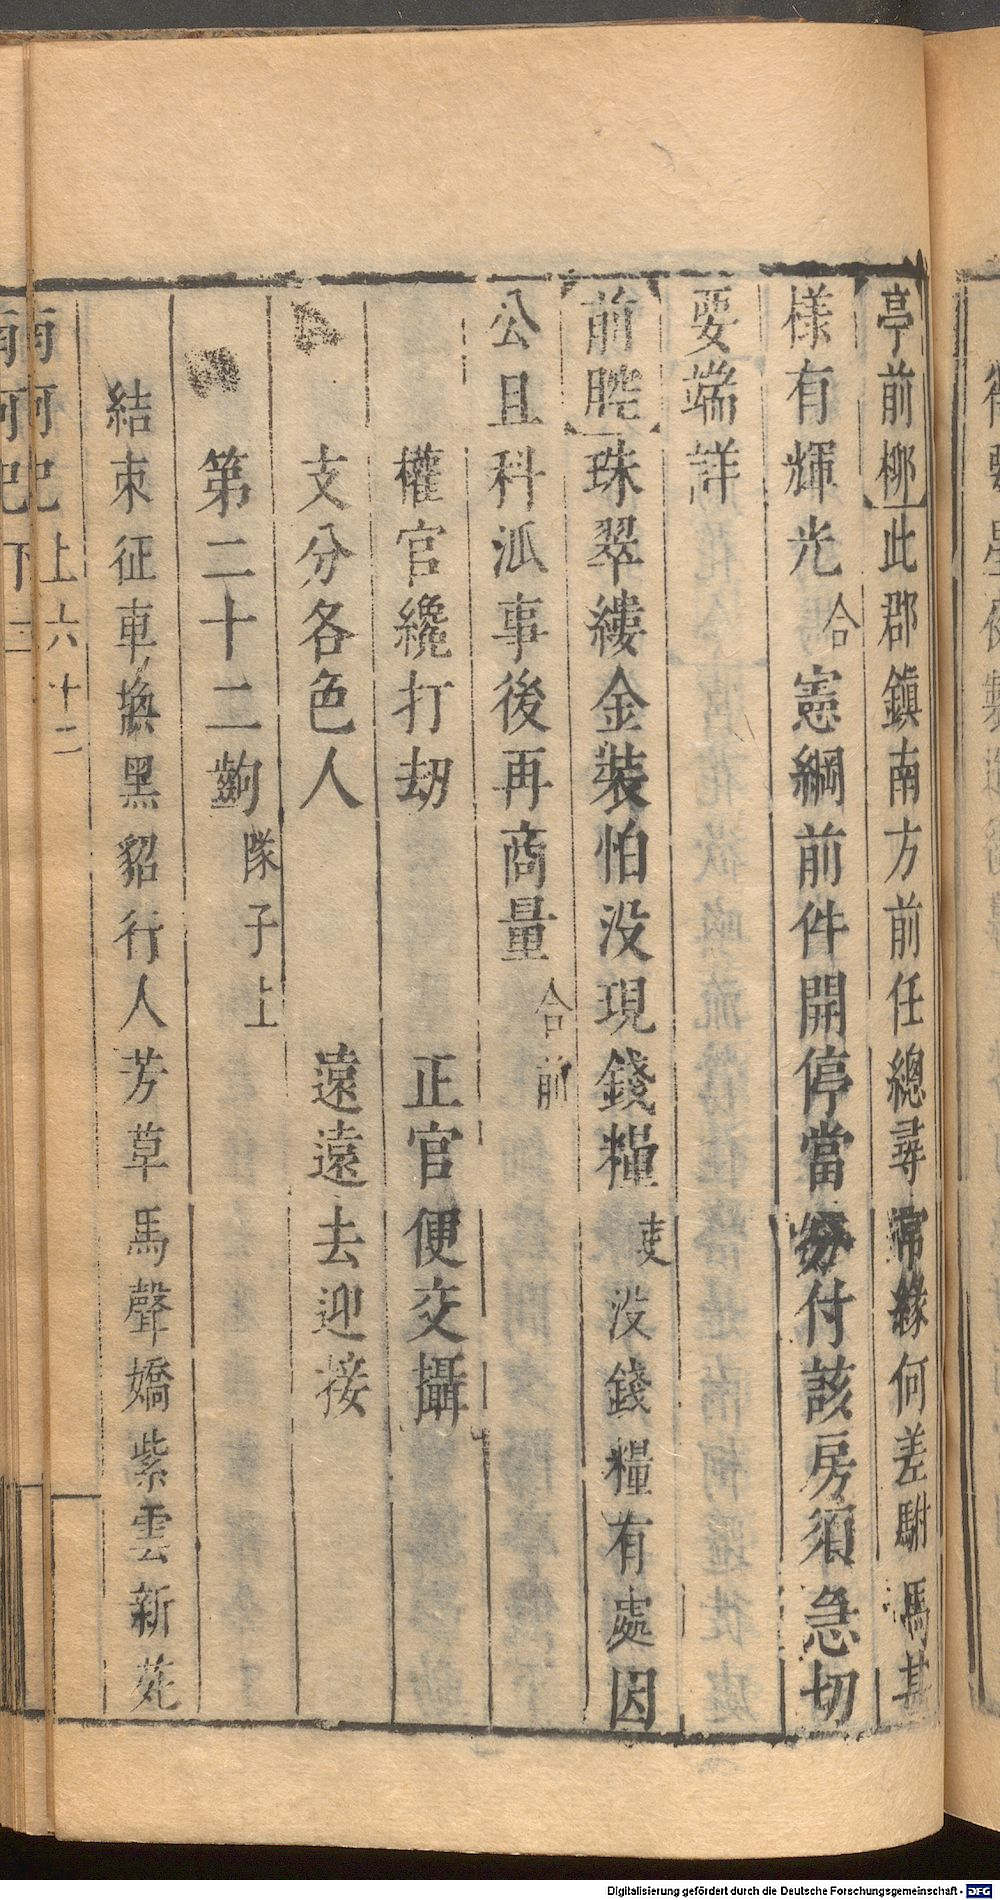 亭前柳此郡鎮南方前任總尋常緣何差駙馬甚
樣有輝光合憲綱前件開停當分付該房須急切
要端詳
前腔珠翠縷金裝怕没現錢糧吏没錢糧有處因
公且科派事後再商量合前
權官纔打刼 正官便交攝
支分各色人 遠遠去迎接
第二十二齣隊子上
結束征車換黑貂行人芳草馬聲嬌紫雲新苑
上六十二
Digitalisierung gefördert durch die Deutsche Forschungsgemeinschaft - DFG